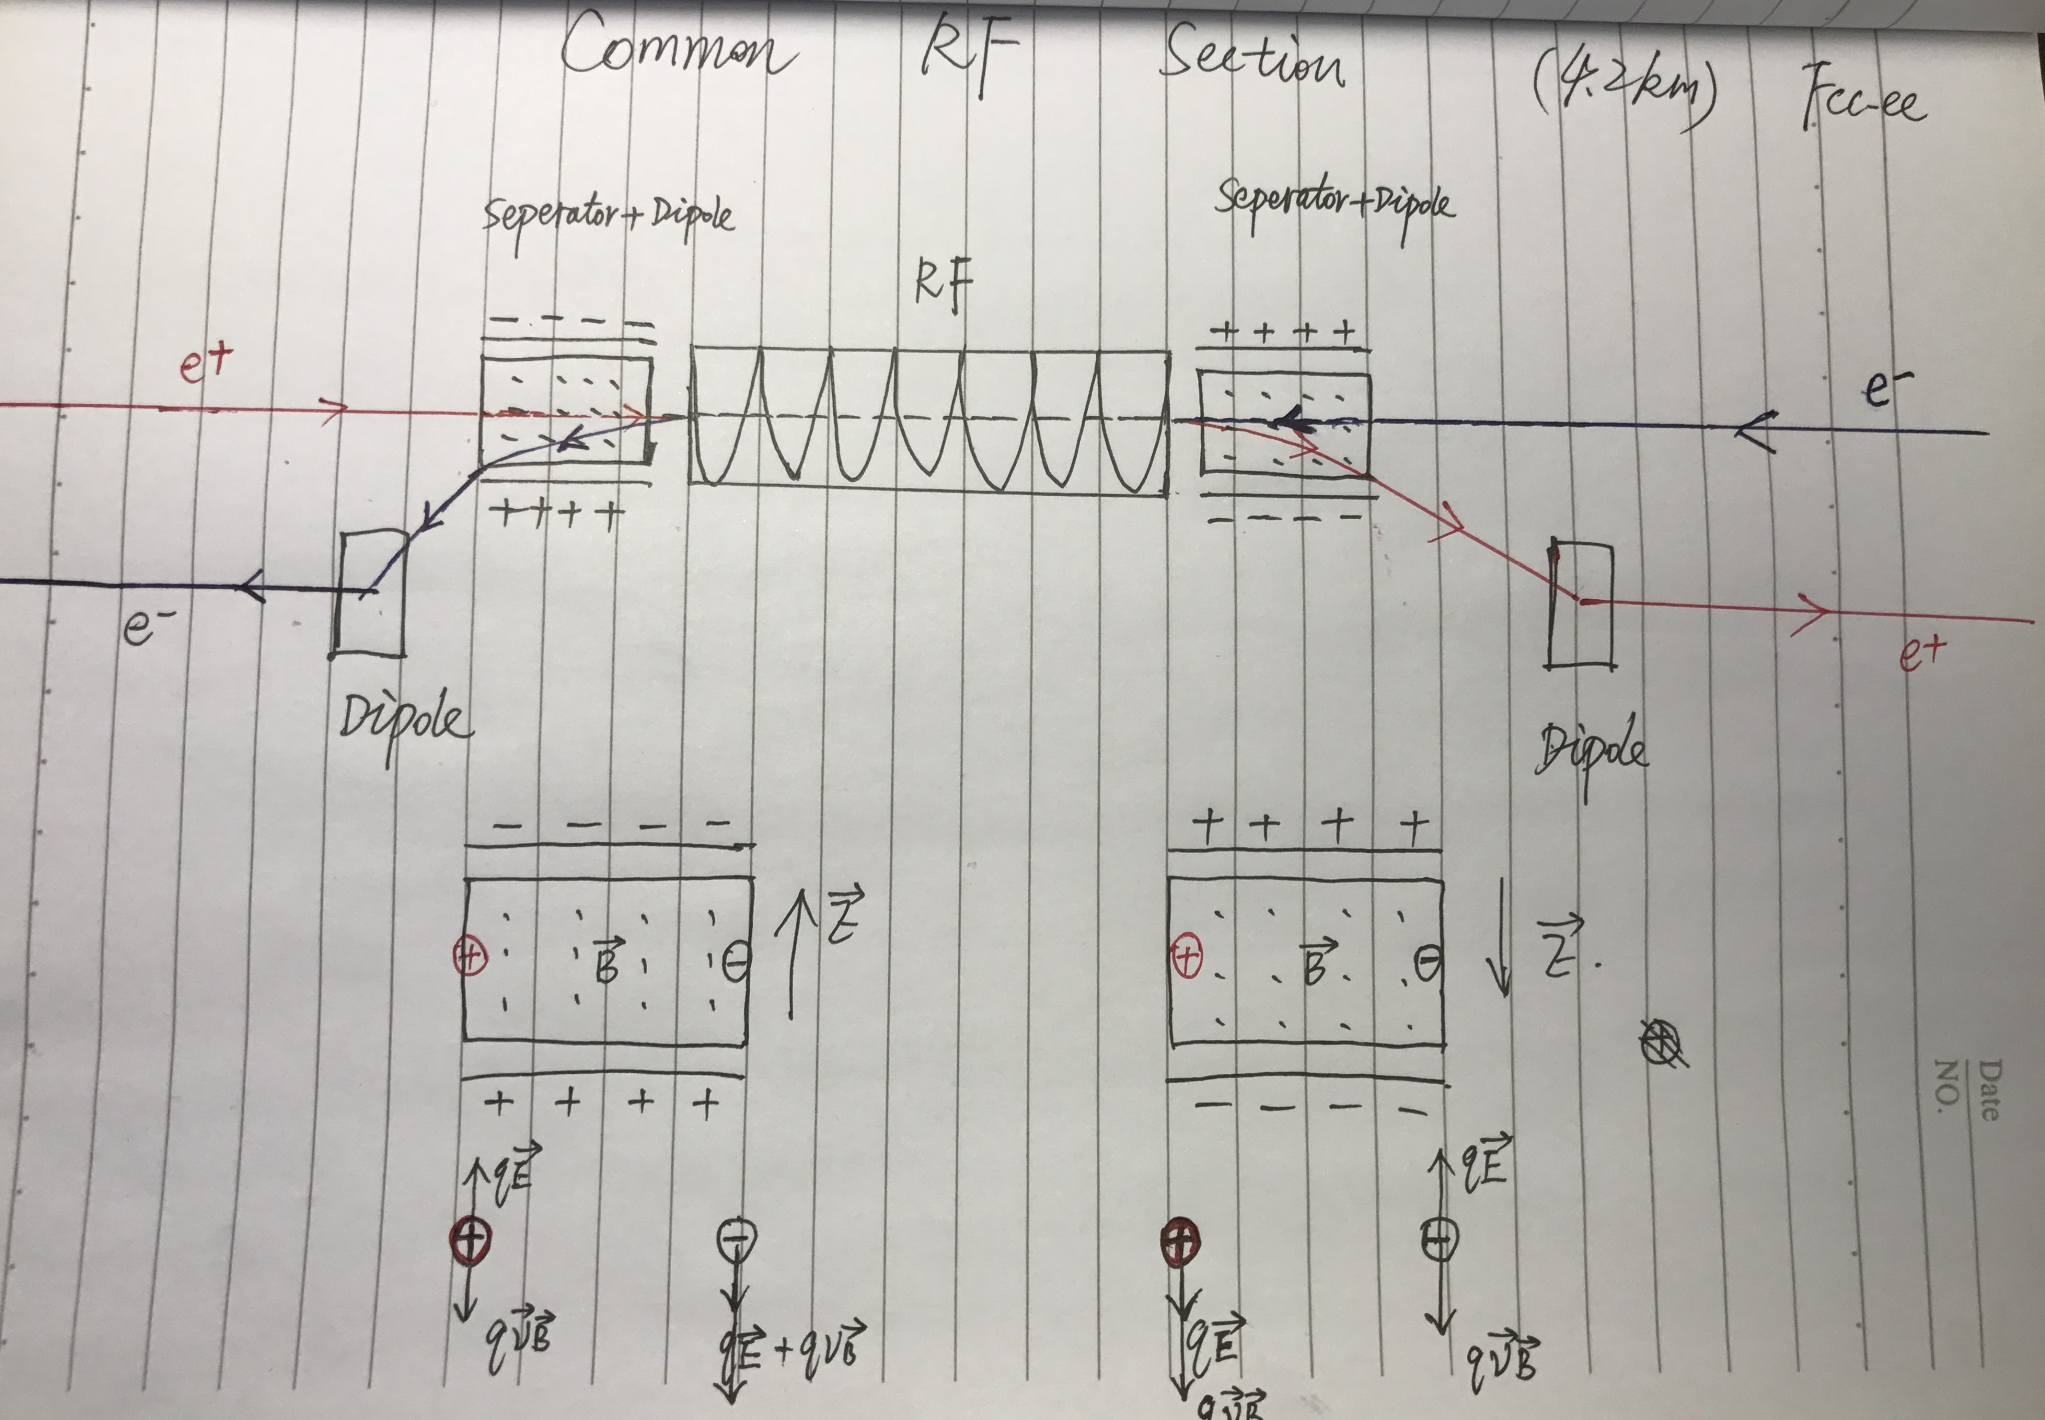 Common RF Section (4.2km) Fcc-ee
Seperator+Dipole Seperator+Dipole
RF
- - - - + + + +
e+ e-
+ + + + - - - -
e- e+
Dipole Dipole
- - - - + + + +
+ B - E + B - E .
+ + + + - - - -
qE qE
+ - + -
qvB qE + qvB qE qvB
qvB
Date
NO.